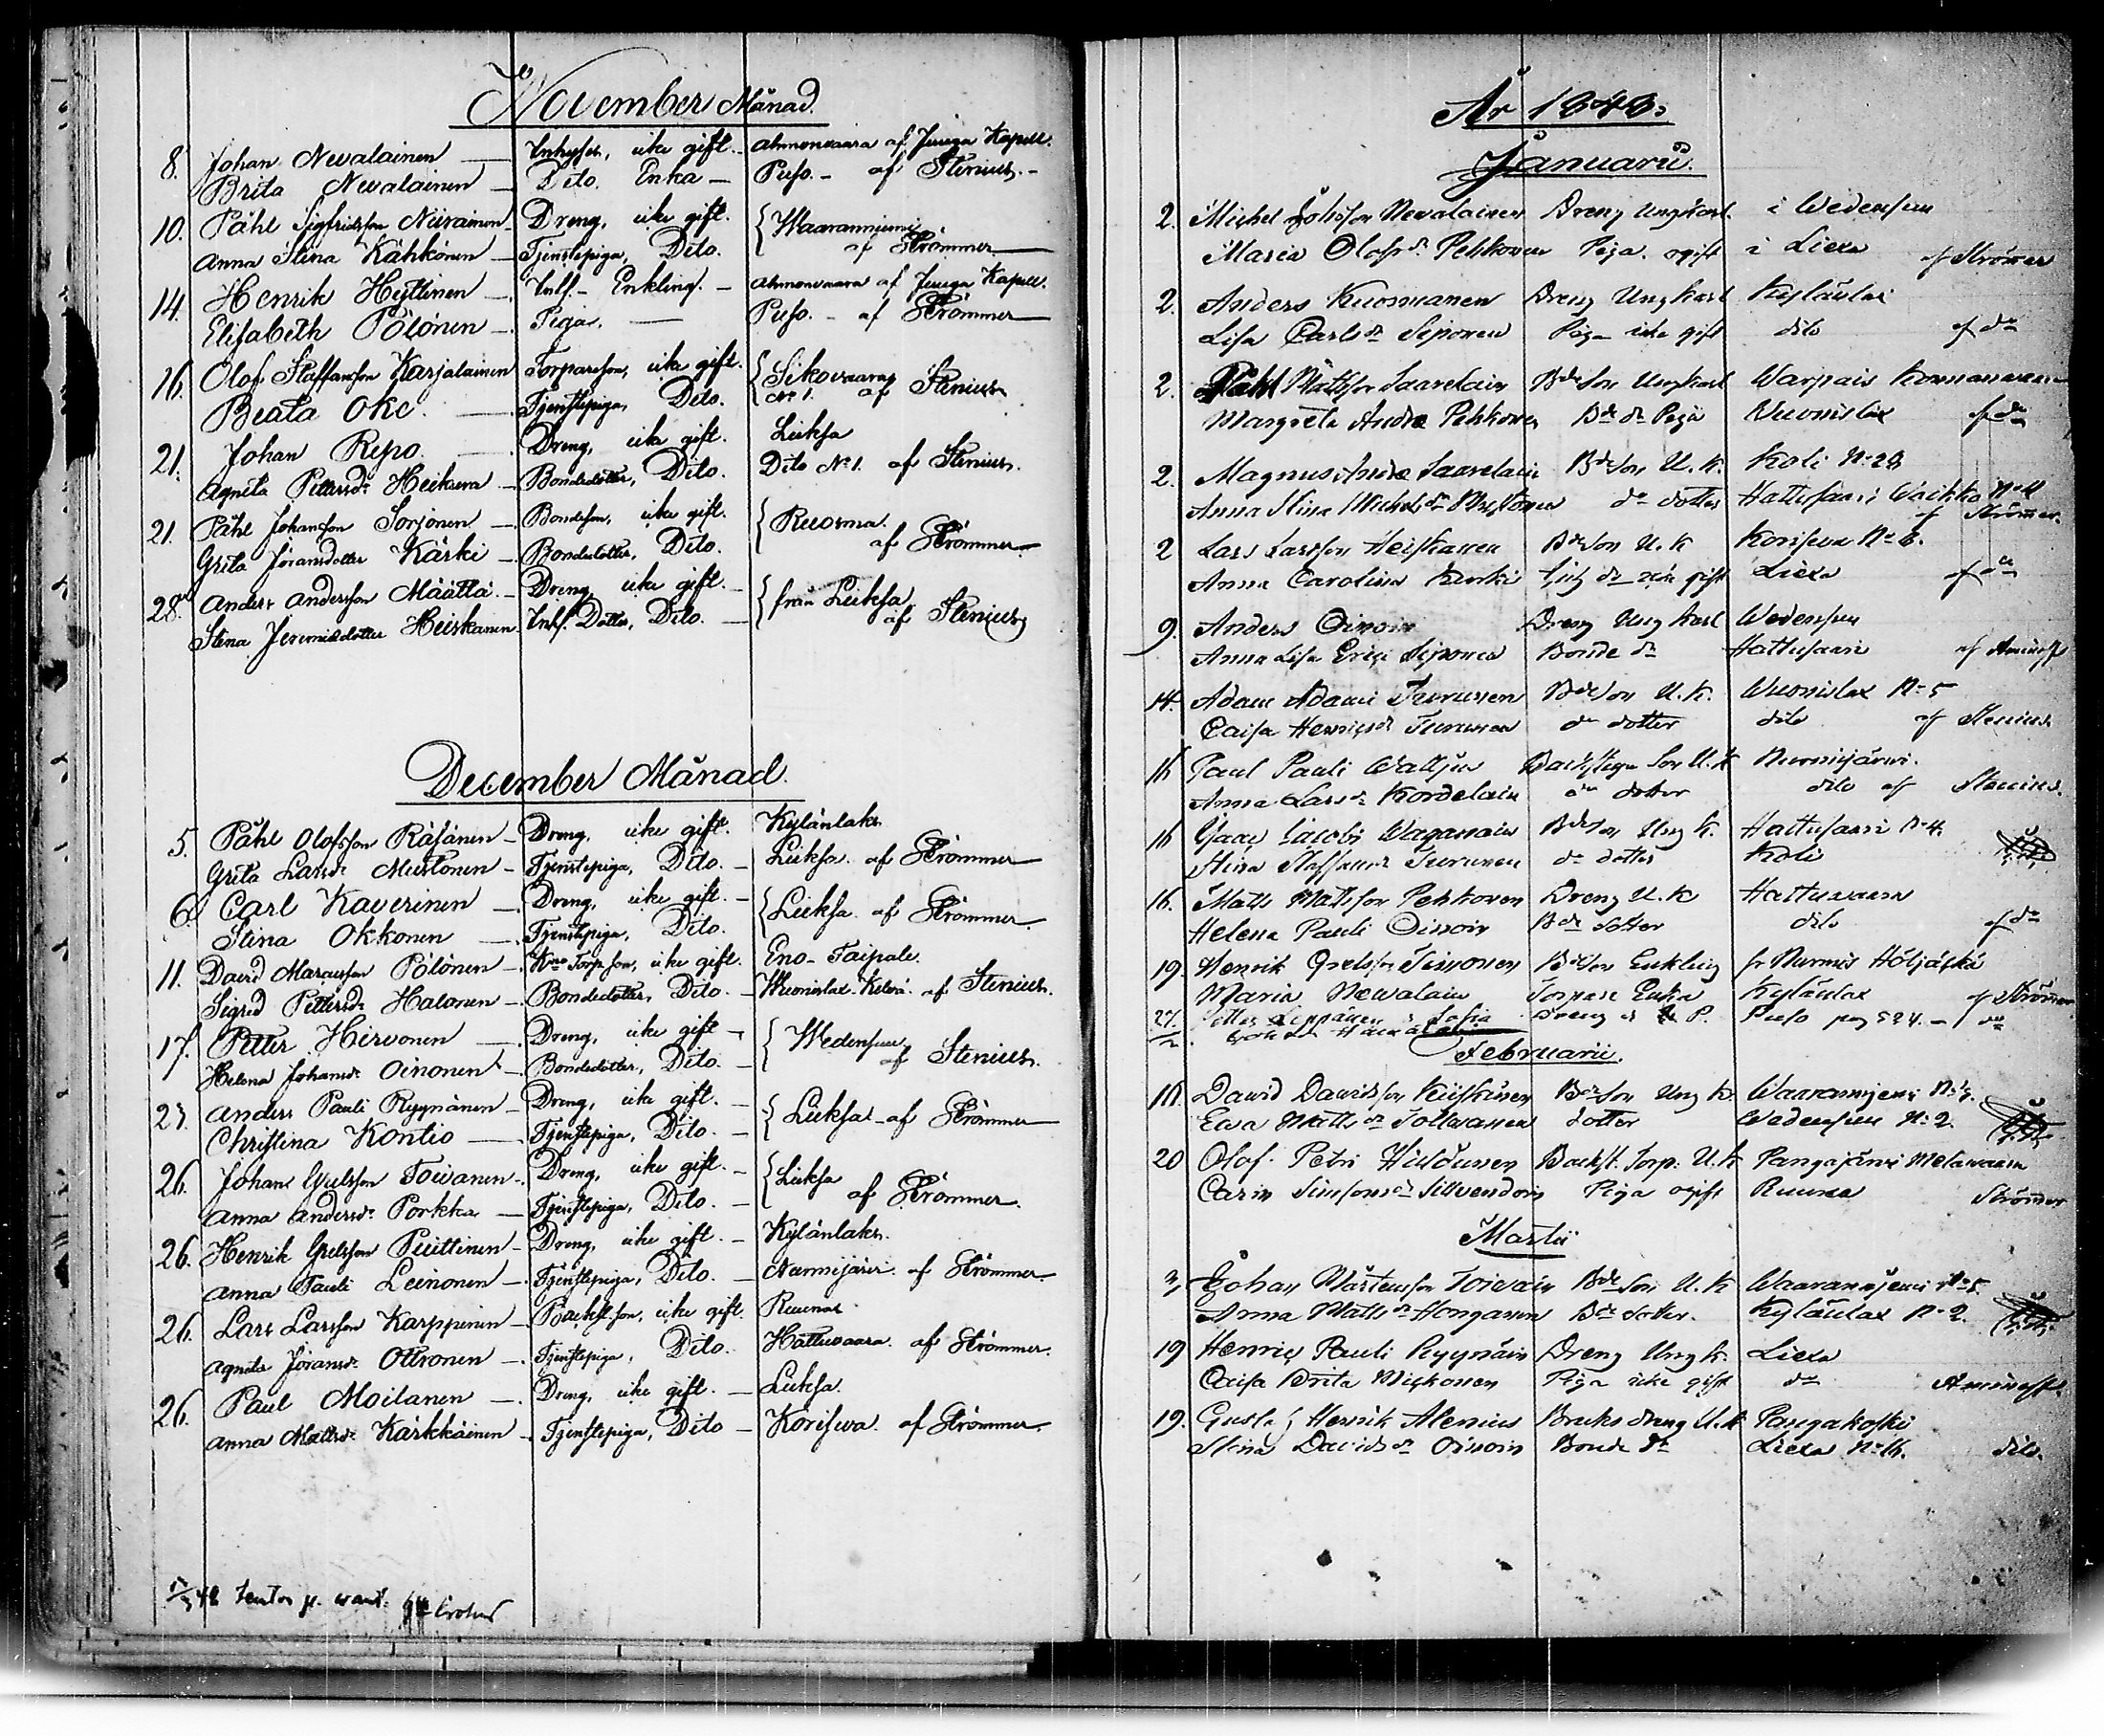 November Månad.
8. Johan Nevalainen — Inhyses, icke gift. Ahmonvaara af Juuga Kapell.
Brita Nevalainen — Dito. Enka — Puso. — af Stenius. —
10. Påhl Sigfridsson Niiranen — Dreng, icke gift. Waaranniemi
Anna Stina Kähkönen — Tjenstepiga, Dito. af Strömmer
14. Henrik Hyttinen — Inhs. — Enkling. — Ahmonvaara af Juuga Kapell.
Elisabeth Pölönen — Piga. — Puso. — af Strömmer
16. Olof Staffansson Karjalainen Torpareson, icke gift. Sikovaara
Beata Okc. — Tjenstepiga, Dito. No 1. af Stenius
21. Johan Repo. — Dreng, icke gift. Lieksa
Agneta Pettersdr Heikura — Bondedotter, Dito. Dito No 1. af Stenius.
21. Påhl Johansson Sorjonen — Bondeson, icke gift. Ruosma.
Greta Jöransdotter Kärki — Bondedotter, Dito. af Strömmer
28. Anders Andersson Määttä — Dreng, icke gift. — från Lieksa
Stina Jeremiædotter Heiskanen. Inhs. Dotter, Dito. — af Stenius
December Månad.
5. Påhl Olofsson Räsänen — Dreng, icke gift. Kylänlaks.
Greta Larsdr Mustonen — Tjenstepiga, Dito. — Lieksa. af Strömmer
6. Carl Kaverinen — Dreng, icke gift. — Lieksa. af Strömmer
Stina Okkonen — Tjenstepiga, Dito.
11. David Maransson Pölönen — Kno Torp. son, icke gift. Eno — Taipale.
Sigrid Pettersdr Halonen — Bondedotter, Dito. — Wuonislax. Kelvä. af Stenius.
17. Petter Hirvonen — Dreng, icke gift — Wiedensuu
Helena Johansdr Oinonen — Bondedotter, Dito. — af Stenius.
23. Anders Pauli Ryynänen — Dreng, icke gift. — Lieksa — af Strömmer
Christina Kontio — Tjenstepiga, Dito. —
26. Johan Grelsson Toivanen — Dreng, icke gift. — Lieksa
Anna Andersdr Porkka — Tjenstepiga, Dito. — af Strömmer.
26. Henrik Grelsson Piittinen — Dreng, icke gift. — Kylänlaks.
Anna Pauli Leinonen — Tjenstepiga, Dito. — Nurmijärvi. af Strömmer.
26. Lars Larsson Karppinen — Backst. son, icke gift. Ruunas.
Agneta Jöransdr Ottronen — Tjenstepiga, Dito. Hattuvaara. af Strömmer.
26. Paul Moilanen — Dreng, icke gift. — Lieksa.
Anna Mattsdr Kärkkäinen — Tjenstepiga, Dito — Koriseva. af Strömmer.
År 1848.
Januarii.
2. Michel Johsson Nevalainen Dreng Ungkarl. i Wedensuu
Maria Olofsdr Pehkonen Piga. ogift i Liexa af Strömer
2. Anders Kuosmanen Dreng Ungkarl Kylänlax
Lisa Carlsdr Siponen Piga icke gift dito af do
2. Påhl Mattsson Saarelain Bdeson Ungkarl Warpais
Margreta Andræ Pehkonen Bde dr Piga Wuonislax af do
2. Magnus Andræ Saarelain Bdeson U. K. Koli No 29
Anna Stina Michelsdr do dotter Hattusaari No 4
af Strömer.
2 Lars Larsson Heiskanen Bdeson U. K Korisewa No 6.
Anna Carolina dr icke gift Liexa af do
9. Anders Oinoin Dreng Ungkarl Wedensuu
Anna Lisa Erici Siponen Bonde dr Hattusaari af Aminoff
14. Adam Adami Turunen Bdeson U. K. Wuonislax No 5
Caisa Henricsdr Turunen do dotter dito af Stenius.
16 Paul Pauli Son U. K Nurmijärwi.
Anna Larsdr Kordelain do dotter dito af Stenius.
16 Isaac Jacobs Bdeson Ung K. Hattusaari No 4.
Stina Staffansdr Turunen do dotter Koli
16. Matts Mattsson Pehkonen Dreng U. K Hattuvaara
Helena Pauli Oinoin Bde dotter dito af do
19. Henrik Grelsson Timonen Bdeson Enkling fr Nurmis Höljäskä
Maria Newalain Torpare Enka Kylänlax af Strömer
27. Petter Leppänen Dreng Puso pag 524. —
Februarii.
18. Dawid Dawidsson Kiiskinen Bdeson Ung K. Waaranniemi
Ewa Mattsdr Tolwanen dotter Wedensuu No 2.
20 Olof Petri Backst. Torp. U. K Pangajärwi
Carin Simonsdr Sillwendoin Piga ogift Ruunaa Strömer
Martii
3 Johan Mårtensson Toivain Bdeson U. K Waaranniemi No 5
Anna Mattsdr Honganen Bde dotter. Kylänlax No 2.
19 Henric Pauli Ryynäin Dreng Ung K. Liexa
Caisa Brita Mickonen Piga icke gift do Aminoff
19. Gustaf Henrik Alenius Bruks dreng U. K Pangakoski
Stina Davidsdr Oinoin Bonde dr Liexa No 16. dito.